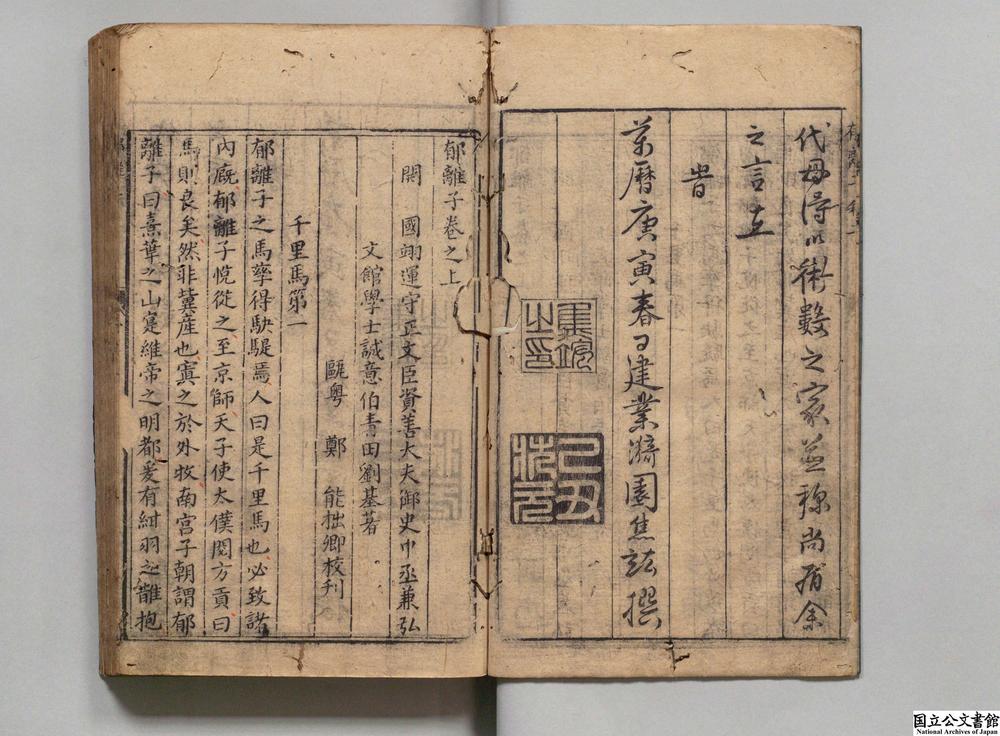 代毋得以術數之家並稱尚有余
之言在
旹
萬曆庚寅春日建業漪園焦竑撰
焦竑之印
己丑狀元
郁離子卷之上
開 國翊運守正文臣資善大夫御史中丞兼弘
文館學士誠意伯青田劉基著
甌粵 鄭 能拙卿校刊
千里馬第一
郁離子之馬孳得駃騠焉人曰是千里馬也必致諸
內廐郁離子悅從之至京師天子使太僕閱方貢曰
馬則良矣然非冀產也寘之於外牧南宫子朝謂郁
離子曰熹華之山寔維帝之明都爰有紺羽之鵲抱
国立公文書館
National Archives of Japan